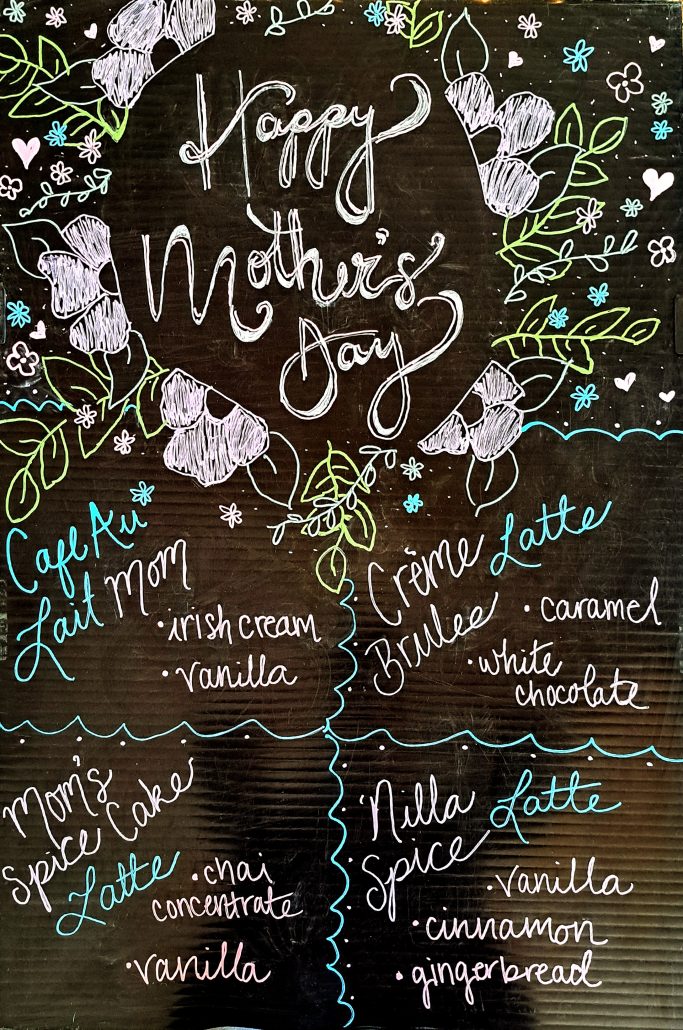 Happy
Mother's
Day
Cafe Au
Lait Mom
•irish cream
•vanilla
Crème Latte
Brulee
•caramel
•white
chocolate
Mom's
Spice Cake
Latte
•chai
concentrate
•vanilla
'Nilla Latte
Spice
•vanilla
•cinnamon
•gingerbread